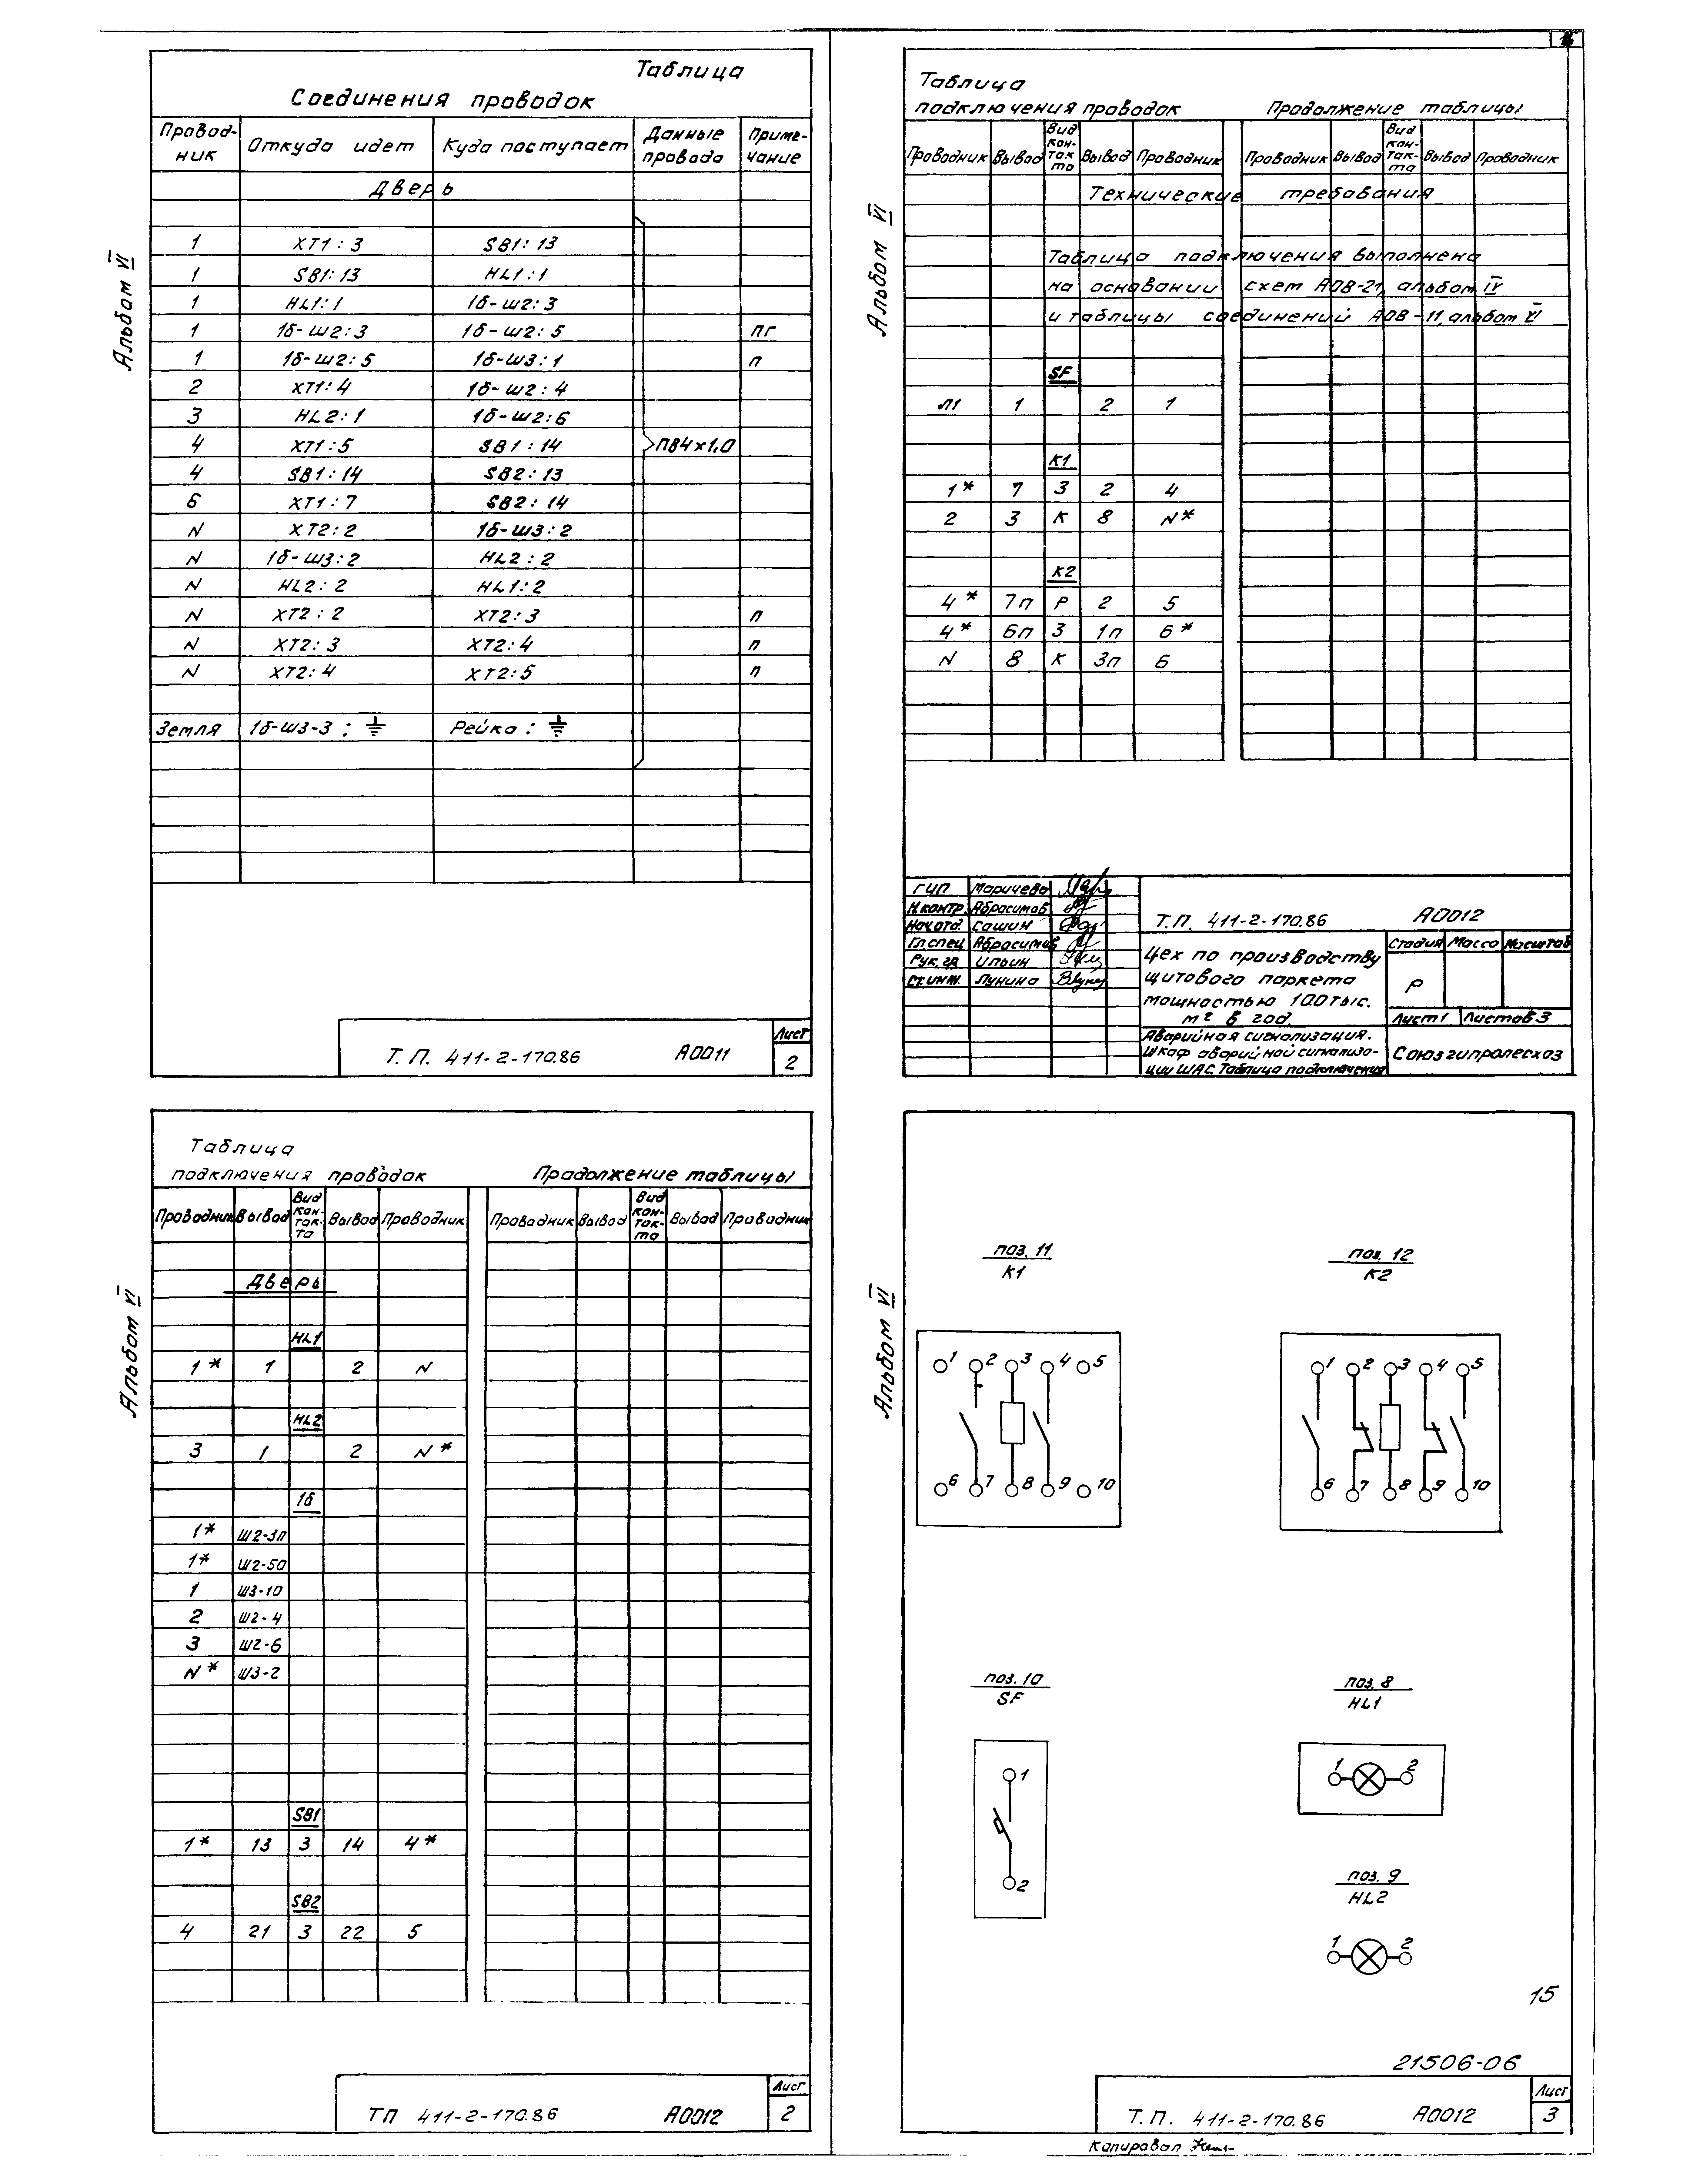 Альбом VI
Таблица
Соединения проводок
Провод-ник | Откуда идет | Куда поступает | Данные провода | Приме-чание
Дверь
1 | XT1:3 | SB1:13
1 | SB1:13 | HL1:1
1 | HL1:1 | 1б-Ш2:3
1 | 1б-Ш2:3 | 1б-Ш2:5 | пг
1 | 1б-Ш2:5 | 1б-Ш3:1 | п
2 | XT1:4 | 1б-Ш2:4
3 | HL2:1 | 1б-Ш2:6
4 | XT1:5 | SB1:14 | ПВ4х1,0
4 | SB1:14 | SB2:13
6 | XT1:7 | SB2:14
N | XT2:2 | 1б-Ш3:2
N | 1б-Ш3:2 | HL2:2
N | HL2:2 | HL1:2
N | XT2:2 | XT2:3 | п
N | XT2:3 | XT2:4 | п
N | XT2:4 | XT2:5 | п
Земля | 1б-Ш3-3: ⏚ | Рейка: ⏚
Т.П. 411-2-170.86 А0011
Лист
2
Альбом VI
Таблица
подключения проводок Продолжение таблицы
Проводник | Вывод | Вид кон-так та | Вывод | Проводник | Проводник | Вывод | Вид кон-так-та | Вывод | Проводник
Технические требования
Таблица подключения выполнена
на основании схем АОВ-21, альбом IV
и таблицы соединений АОВ-11, альбом VI
SF
Л1 | 1 | 2 | 1
К1
1* | 7 | З | 2 | 4
2 | 3 | К | 8 | N*
К2
4* | 7п | Р | 2 | 5
4* | 6п | З | 1п | 6*
N | 8 | К | 3п | 6
ГИП Маричева
Н.контр. Абрасимов
Нач.отд. Сашин
Гл.спец Абрасимов
Рук.гр Ильин
Ст.инж. Лунина
Т.П. 411-2-170.86 А0012
Цех по производству
щитового паркета
мощностью 100 тыс.
м² в год.
Стадия Масса Масштаб
Р
Лист 1 Листов 3
Аварийная сигнализация.
Шкаф аварийной сигнализа-
ции ШАС. Таблица подключения
Союзгипролесхоз
Альбом VI
Таблица
подключения проводок Продолжение таблицы
Проводник | Вывод | Вид кон-так-та | Вывод | Проводник | Проводник | Вывод | Вид кон-так-та | Вывод | Проводник
Дверь
HL1
1* | 1 | 2 | N
HL2
3 | 1 | 2 | N*
1б
1* | Ш2-3п
1* | Ш2-50
1 | Ш3-10
2 | Ш2-4
3 | Ш2-6
N* | Ш3-2
SB1
1* | 13 | З | 14 | 4*
SB2
4 | 21 | З | 22 | 5
ТП 411-2-170.86 А0012
Лист
2
Альбом VI
поз. 11
К1
1 2 3 4 5
6 7 8 9 10
поз. 12
К2
1 2 3 4 5
6 7 8 9 10
поз. 10
SF
1
2
поз. 8
HL1
1 2
поз. 9
HL2
1 2
15
21506-06
Т.П. 411-2-170.86 А0012
Лист
3
Копировал